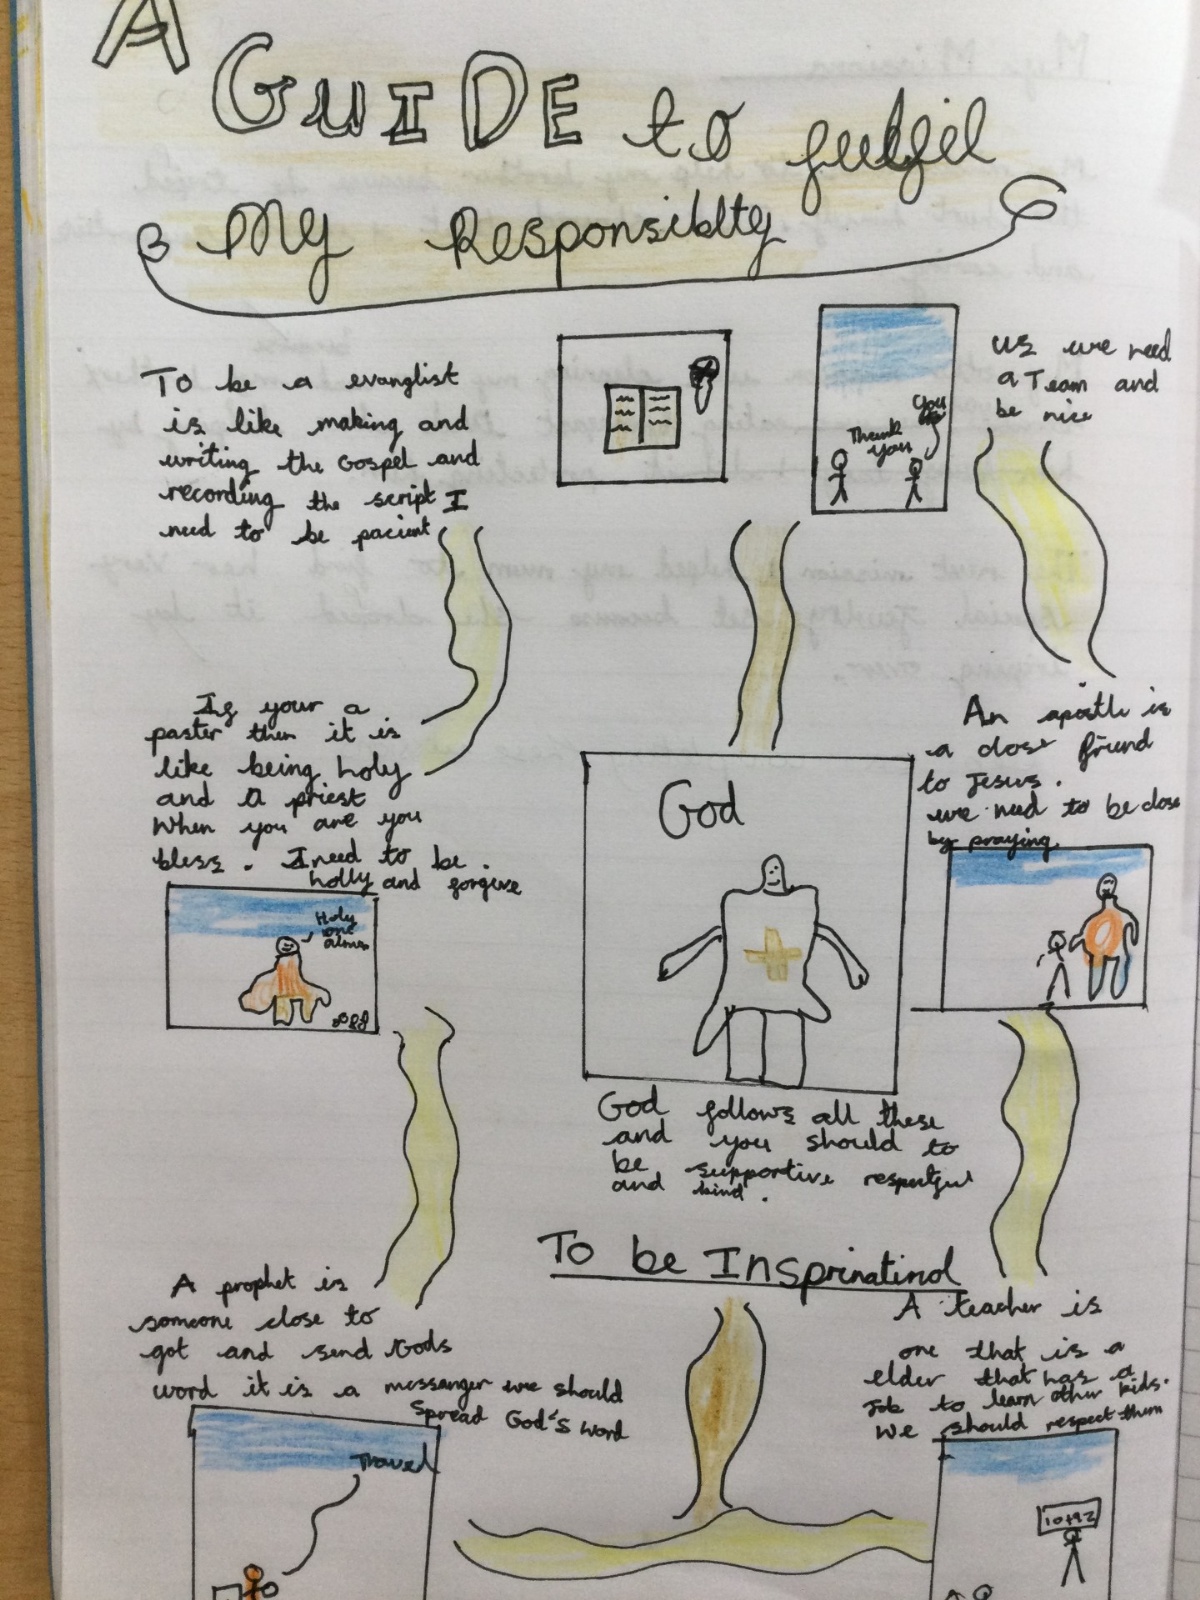 A
GUIDE to fulfil
My Responsiblty
To be a evanglist
is like making and
writing the Gospel and
recording the script I
need to be pacient
Thank
you
You
us we need
a Team and
be nice
If your a
paster then it is
like being holy
and a priest
When you are you
bless. I need to be.
holly and forgive
Holy
one
God
An apostle is
a close friend
to Jesus.
we need to be close
by praying
God follows all these
and you should to
be supportive respectful
and kind.
To be Insprinatinol
A prophet is
someone close to
got and send Gods
word it is a messanger we should
Spread God's word
Travel
A teacher is
one that is a
elder that has a
Job to learn other kids.
We should respect them
10+92